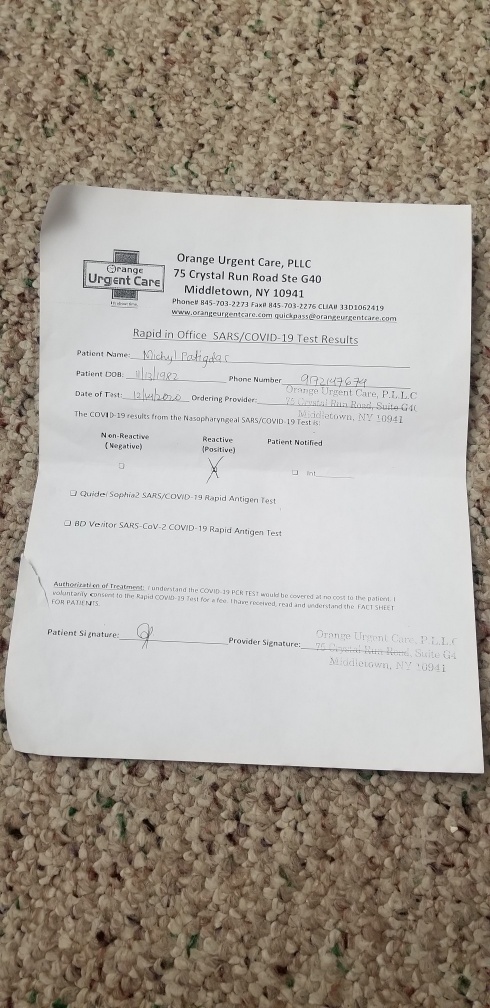 Orange
Urgent Care
Orange Urgent Care, PLLC
75 Crystal Run Road Ste G40
Middletown, NY 10941
Phone# 845-703-2273 Fax# 845-703-2276 CLIA# 33D1062419
www.orangeurgentcare.com quickpass@orangeurgentcare.com
Rapid in Office SARS/COVID-19 Test Results
Patient Name:
Patient DOB: 11/13/1982 Phone Number
Orange Urgent Care, P.L.L.C
Date of Test: Ordering Provider: 75 Crystal Run Road, Suite G4
Middletown, NY 10941
The COVID-19 results from the Nasopharyngeal SARS/COVID-19 Test is:
Non-Reactive Reactive Patient Notified
(Negative) (Positive)
☐ X ☐ Int
☐ Quidel Sophia2 SARS/COVID-19 Rapid Antigen Test
☐ BD Veritor SARS-CoV-2 COVID-19 Rapid Antigen Test
Authorization of Treatment: I understand the COVID-19 PCR TEST would be covered at no cost to the patient. I
voluntarily consent to the Rapid COVID-19 Test for a fee. I have received, read and understand the FACT SHEET
FOR PATIENTS.
Orange Urgent Care, P.L.L.C
Patient Signature: Provider Signature: 75 Crystal Run Road, Suite G4
Middletown, NY 10941